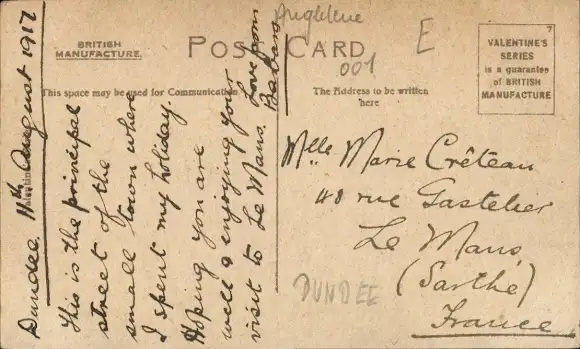 Angleterre
E
001
BRITISH
MANUFACTURE.
POST CARD
This space may be used for Communication
The Address to be written
here
7
VALENTINE'S
SERIES
is a guarantee
of BRITISH
MANUFACTURE
Dundee 11th August 1917
This is the principal
street of the
small town where
I spent my holiday.
Hoping you are
well & enjoying your
visit to Le Mans.
Love from
Mlle Marie Crêteau
48 rue Gastelier
Le Mans
(Sarthe)
France
DUNDEE